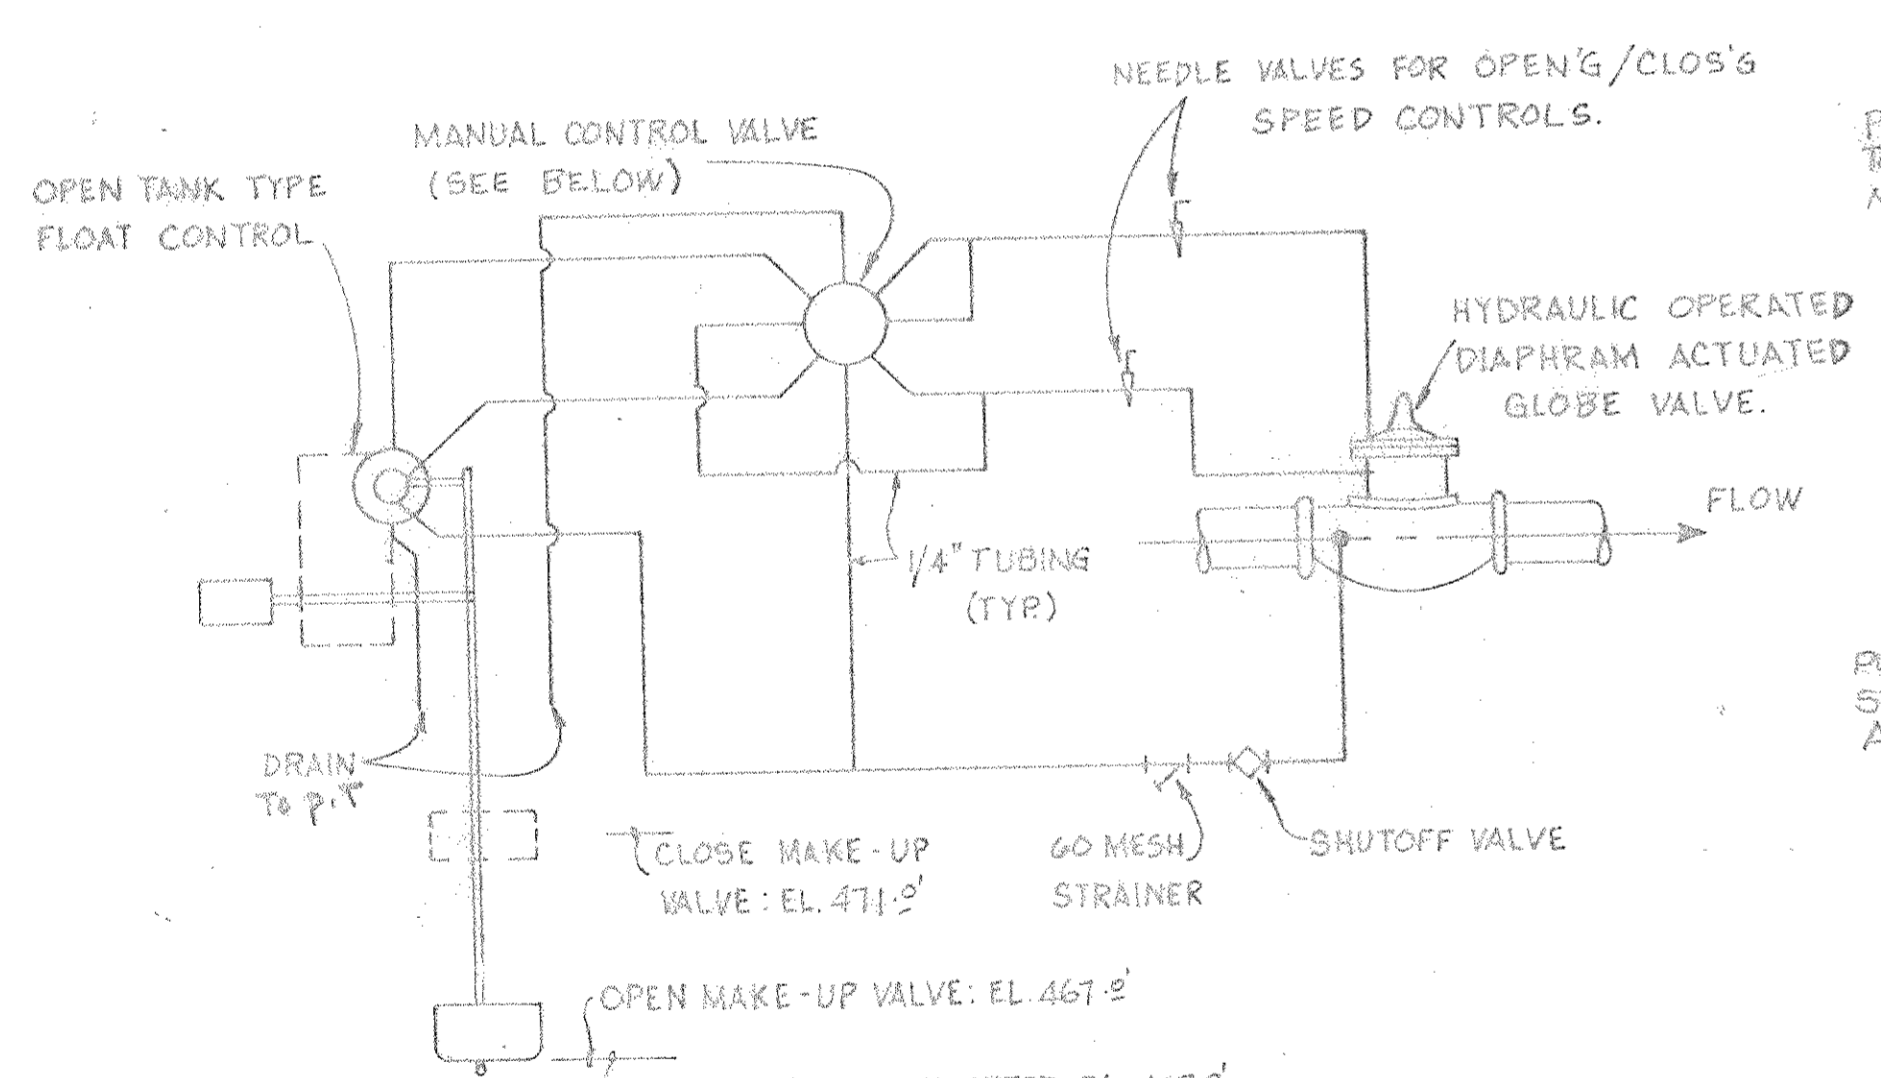 NEEDLE VALVES FOR OPEN'G/CLOS'G
SPEED CONTROLS.
MANUAL CONTROL VALVE
(SEE BELOW)
OPEN TANK TYPE
FLOAT CONTROL
HYDRAULIC OPERATED
DIAPHRAM ACTUATED
GLOBE VALVE.
FLOW
1/4" TUBING
(TYP.)
DRAIN
TO P.T
CLOSE MAKE-UP
VALVE: EL. 471.0'
60 MESH
STRAINER
SHUTOFF VALVE
OPEN MAKE-UP VALVE: EL. 467.0'